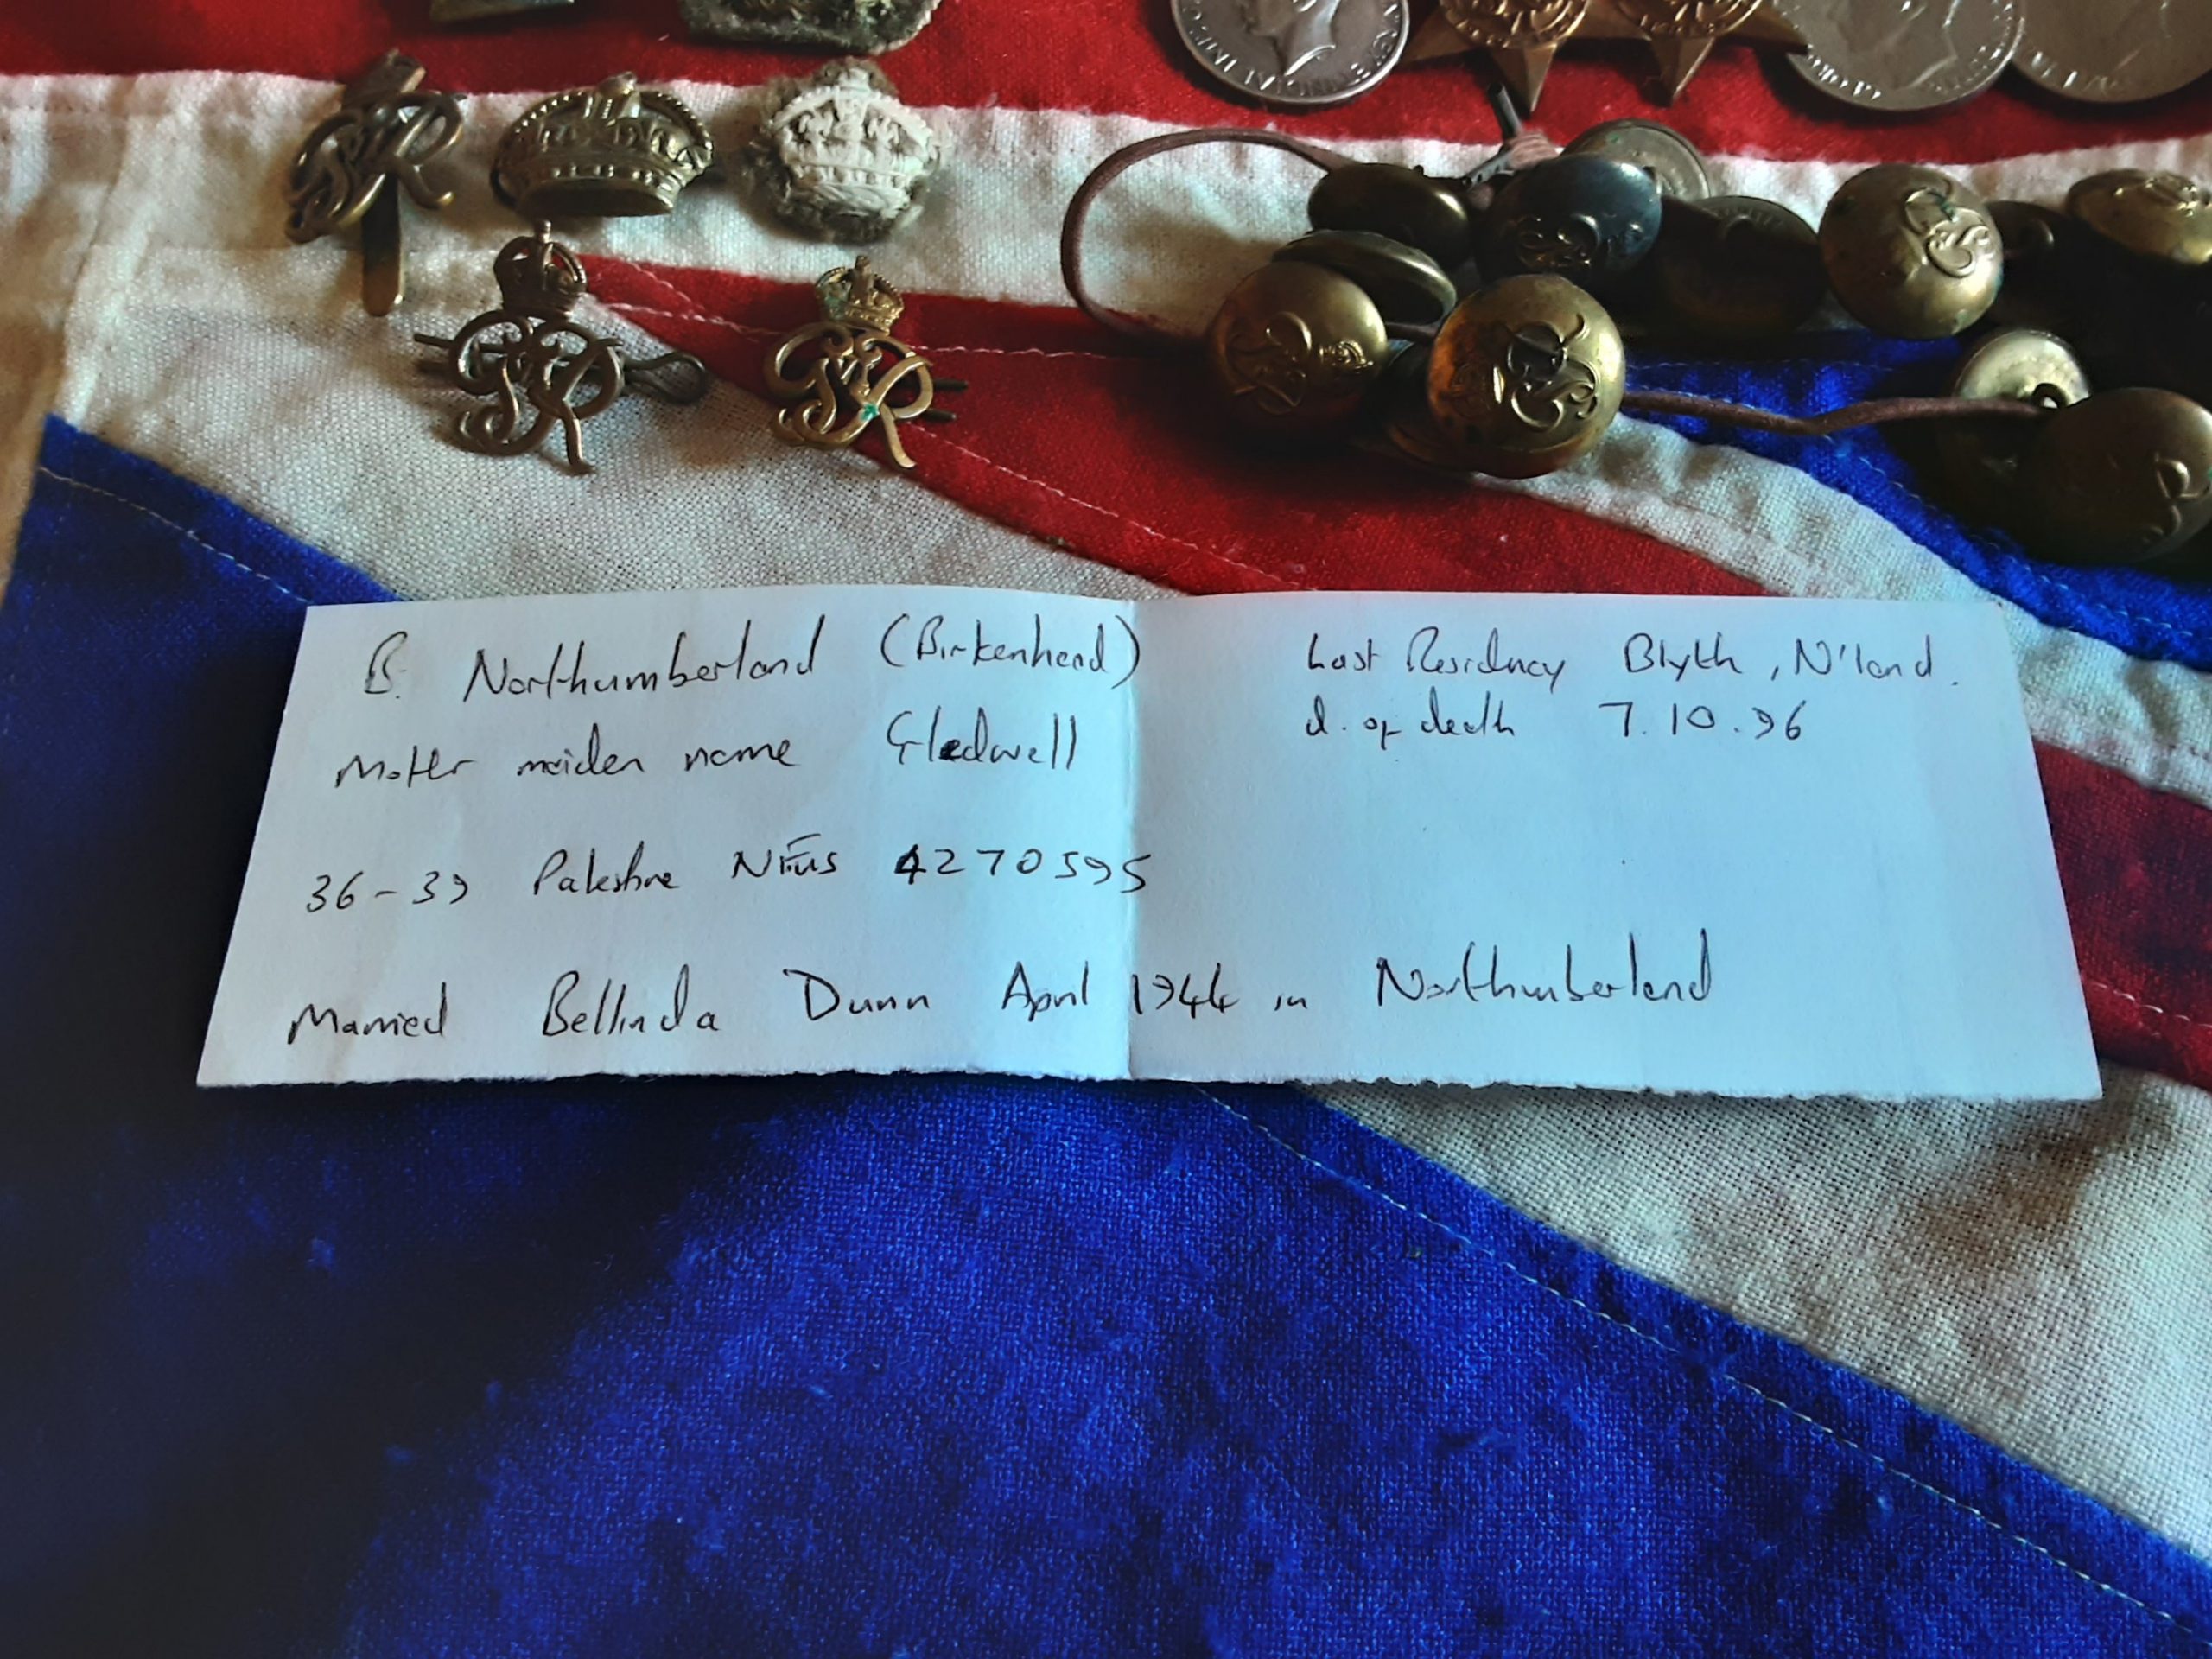 B. Northumberland (Birkenhead)
Mother maiden name Gledwell
36-39 Palestine NFus 4270595
Married Bellinda Dunn April 1944 in Northumberland
Last Residency Blyth, N'land.
d. of death 7.10.96